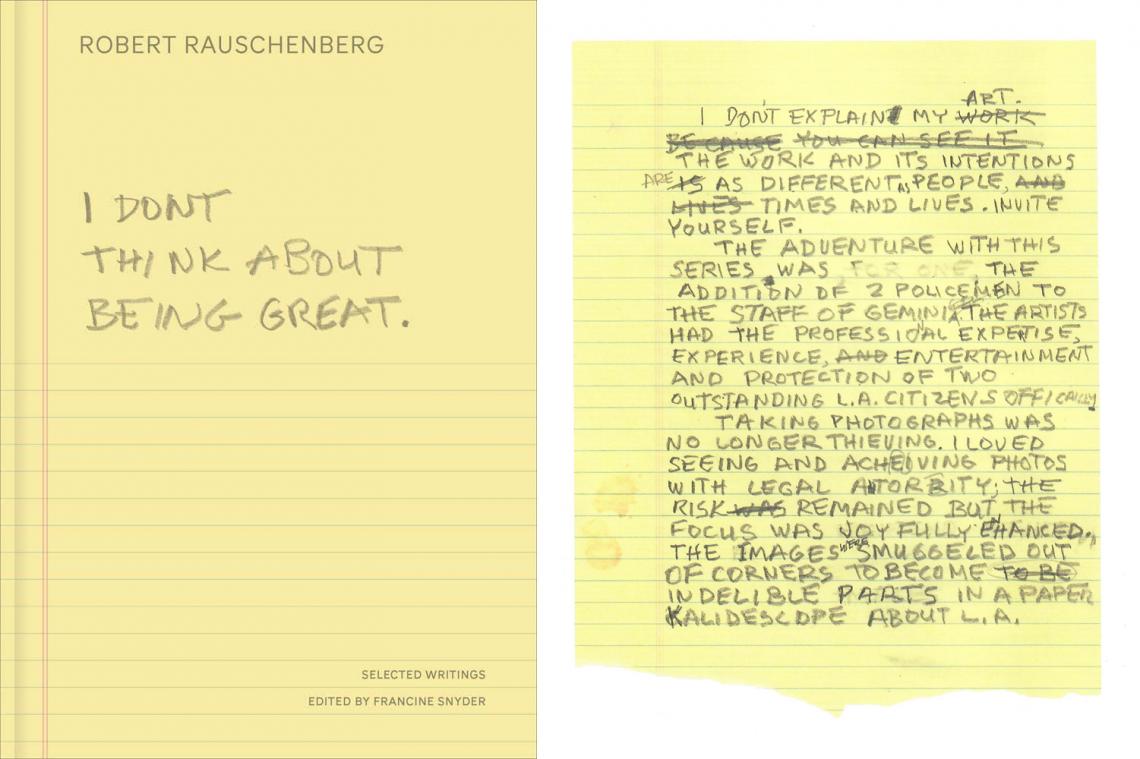 ROBERT RAUSCHENBERG
I DONT
THINK ABOUT
BEING GREAT.
SELECTED WRITINGS
EDITED BY FRANCINE SNYDER
ART.
I DON'T EXPLAIN MY WORK
BECAUSE YOU CAN SEE IT
THE WORK AND ITS INTENTIONS
ARE IS AS DIFFERENT AS PEOPLE, AND
LIVES TIMES AND LIVES. INVITE
YOURSELF.
THE ADVENTURE WITH THIS
SERIES WAS FOR ONE, THE
ADDITION OF 2 POLICEMEN TO
THE STAFF OF GEMINI. THE ARTISTS
HAD THE PROFESSIONAL EXPERTISE,
EXPERIENCE, AND ENTERTAINMENT
AND PROTECTION OF TWO
OUTSTANDING L.A. CITIZENS OFFICALLY
TAKING PHOTOGRAPHS WAS
NO LONGER THIEVING. I LOVED
SEEING AND ACHEIVING PHOTOS
WITH LEGAL THE
RISK WAS REMAINED BUT THE
FOCUS WAS JOYFULLY ENHANCED.
THE IMAGES WERE SMUGGELED OUT
OF CORNERS TO BECOME TO BE
INDELIBLE PARTS IN A PAPER
KALIDESCOPE ABOUT L.A.